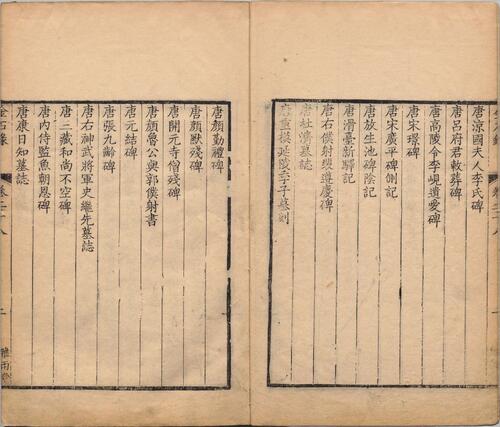 唐涼國夫人李氏碑
唐呂府君敕葬碑
唐高陵令李峴遺愛碑
唐宋璟碑
唐宋廣平碑側記
唐放生池碑陰記
唐滑臺新驛記
唐右僕射裴遵慶碑
唐杜濟墓誌
唐重模延陵季子墓刻
唐顏勤禮碑
唐顏默殘碑
唐開元寺僧殘碑
唐顏魯公與郭僕射書
唐元結碑
唐張九齡碑
唐右神武將軍史繼先墓誌
唐三藏和尚不空碑
唐內侍監魚朝恩碑
唐康日知墓誌
金石錄 卷二十八